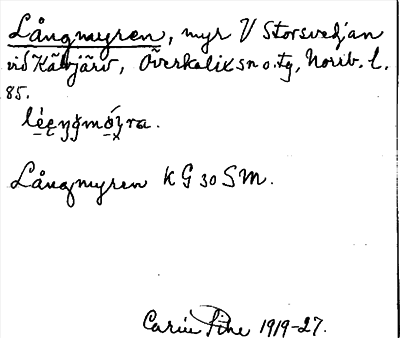 Långmyren, myr V Storsvedjan
vid Kälvjärv, Överkalix sn o. tg, Norrb. l.
85.
Långmyren KG 30 SM.
Carin Pihl 1919-27.